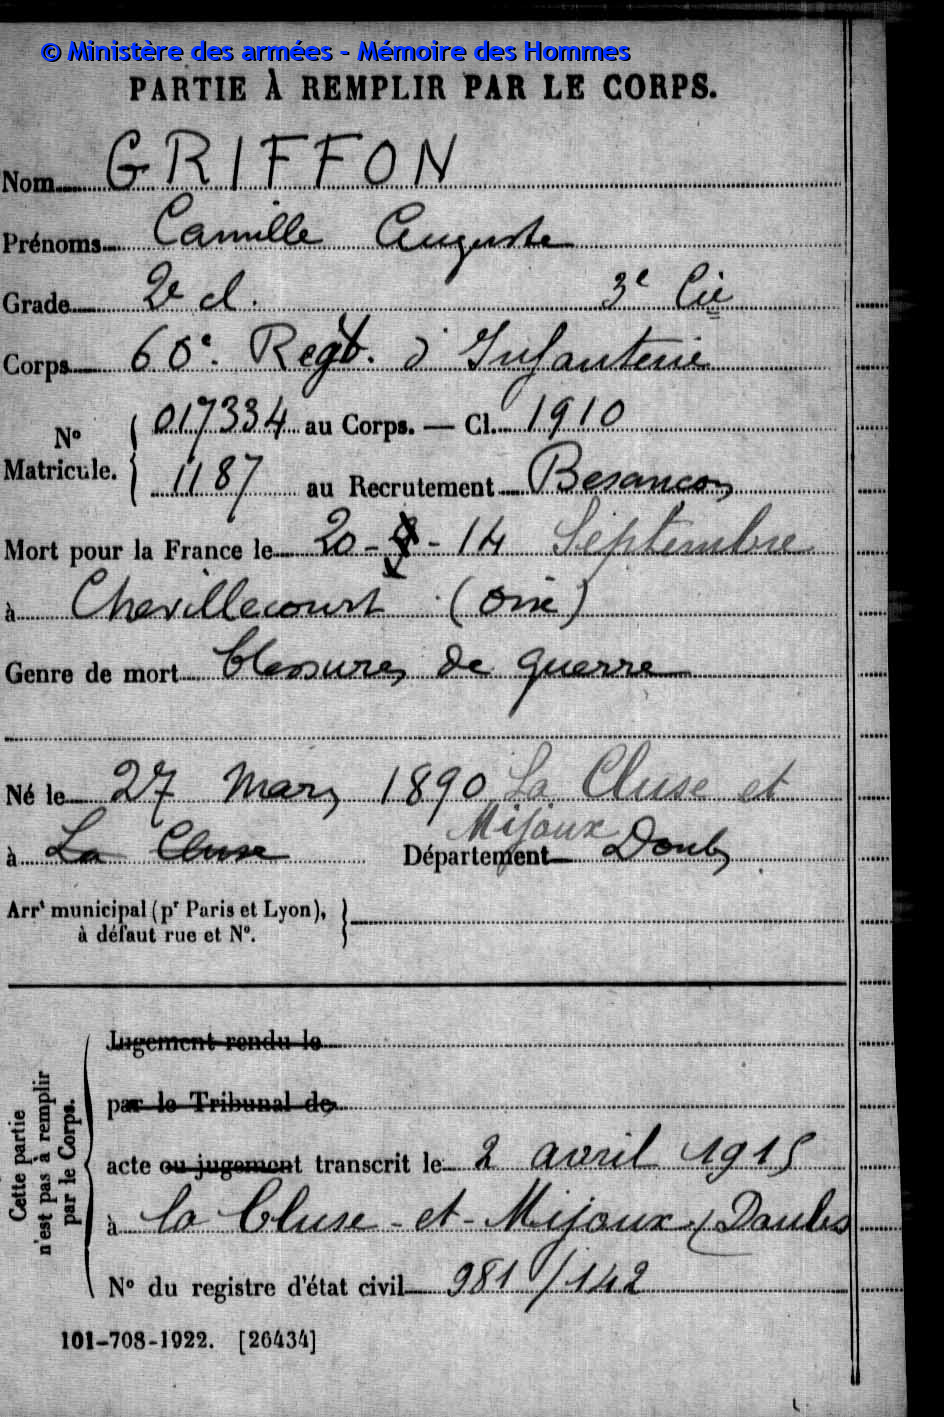 © Ministère des armées - Mémoire des Hommes
PARTIE À REMPLIR PAR LE CORPS.
Nom GRIFFON
Prénoms Camille Auguste
Grade 2e cl. 3e Cie
Corps 60e. Regt. d'Infanterie
N° Matricule. 017334 au Corps. — Cl. 1910
1187 au Recrutement Besançon
Mort pour la France le 20 - - 14 Septembre
à Chevillecourt (Oise)
Genre de mort blessures de guerre
Né le 27 Mars 1890 La Cluse et
Mijoux
à La Cluse Département Doubs
Arrt municipal (pr Paris et Lyon),
à défaut rue et N°.
Cette partie
n'est pas à remplir
par le Corps.
Jugement rendu le
par le Tribunal de
acte ou jugement transcrit le 2 avril 1915
à la Cluse-et-Mijoux (Doubs
N° du registre d'état civil 981/142
101-708-1922. [26434]